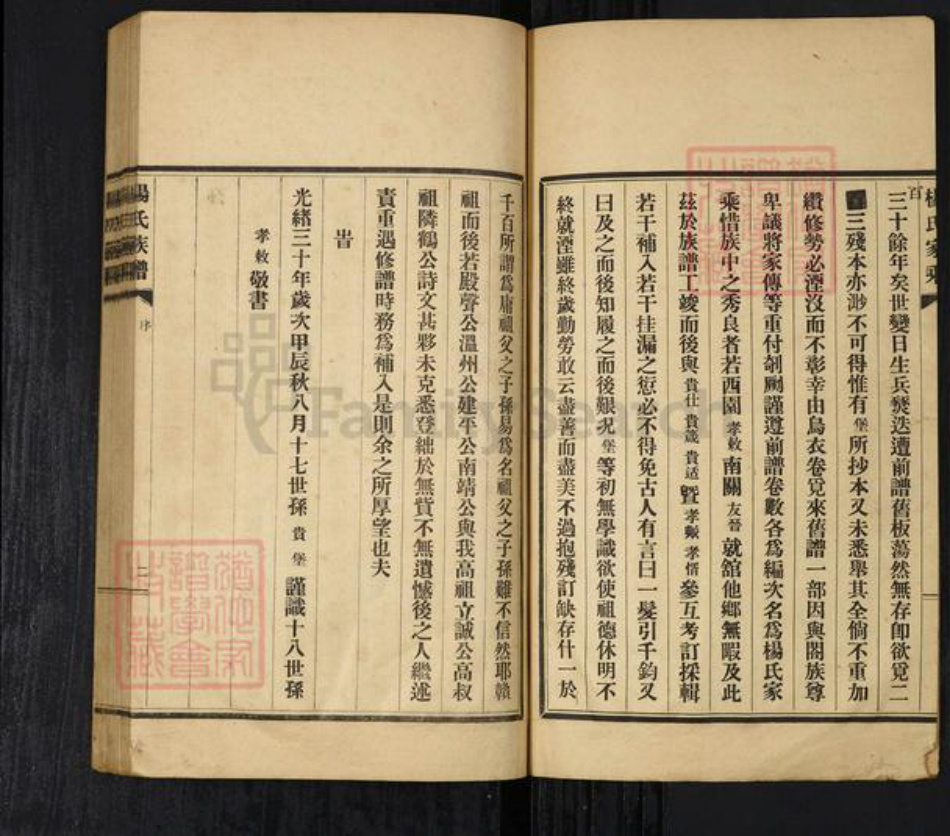 楊氏家乘
百
三十餘年矣世變日生兵燹迭遭前譜舊板蕩然無存卽欲覓二
三殘本亦渺不可得惟有堡所抄本又未悉舉其全倘不重加
纘修勢必湮沒而不彰幸由烏衣卷覓來舊譜一部因與閤族尊
卑議將家傳等重付剞劂謹遵前譜卷數各為編次名為楊氏家
乘惜族中之秀良者若西園孝敕南關友晉就舘他鄉無暇及此
茲於族譜工竣而後與貴仕貴箴貴适曁孝㦤孝悟參互考訂採輯
若干補入若干挂漏之愆必不得免古人有言曰一髮引千鈞又
曰及之而後知履之而後艱况堡等初無學識欲使祖德休明不
終就湮雖終歲勤勞敢云盡善而盡美不過抱殘訂缺存什一於
千百所謂為庸祖父之子孫易為名祖父之子孫難不信然耶贛
祖而後若殿聲公溫州公建平公南靖公與我高祖立誠公高叔
祖隣鶴公詩文甚夥未克悉登絀於無貲不無遺憾後之人繼述
責重遇修譜時務為補入是則余之所厚望也夫
旹
光緒三十年歲次甲辰秋八月十七世孫貴堡謹識十八世孫
孝敕敬書
楊氏族譜
序
二
FamilySearch